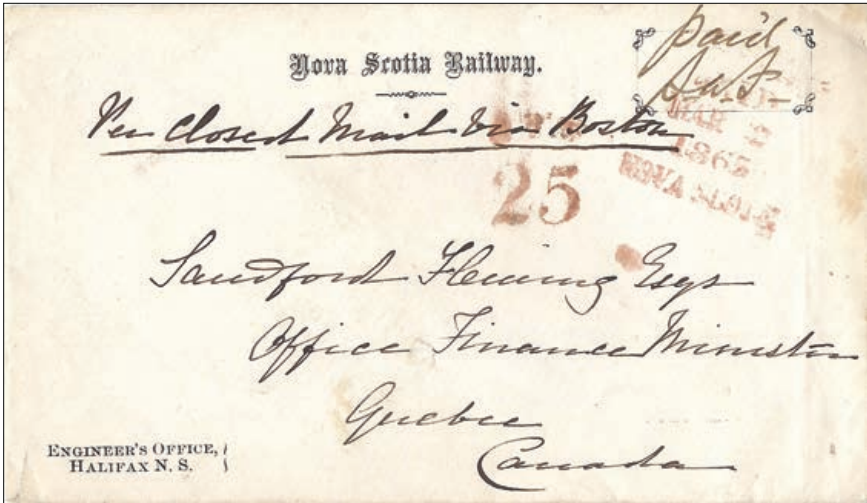 Nova Scotia Railway.
paid
Per Closed Mail via Boston
MAR
1865
NOVA SCOTIA
25
Sandford Fleming Esqr
Office Finance Minister
Quebec
Canada
ENGINEER'S OFFICE,
HALIFAX N. S.